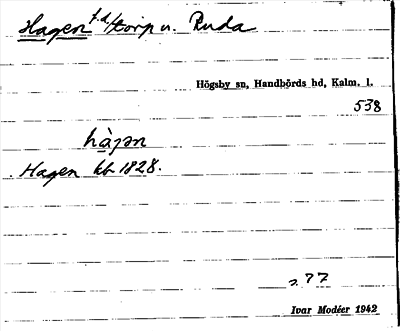 Hagen f.d./torp u. Ruda
Högsby sn, Handbörds hd, Kalm. l.
538
hàgən
Hagen kb 1828.
s. 77
Ivar Modéer 1942